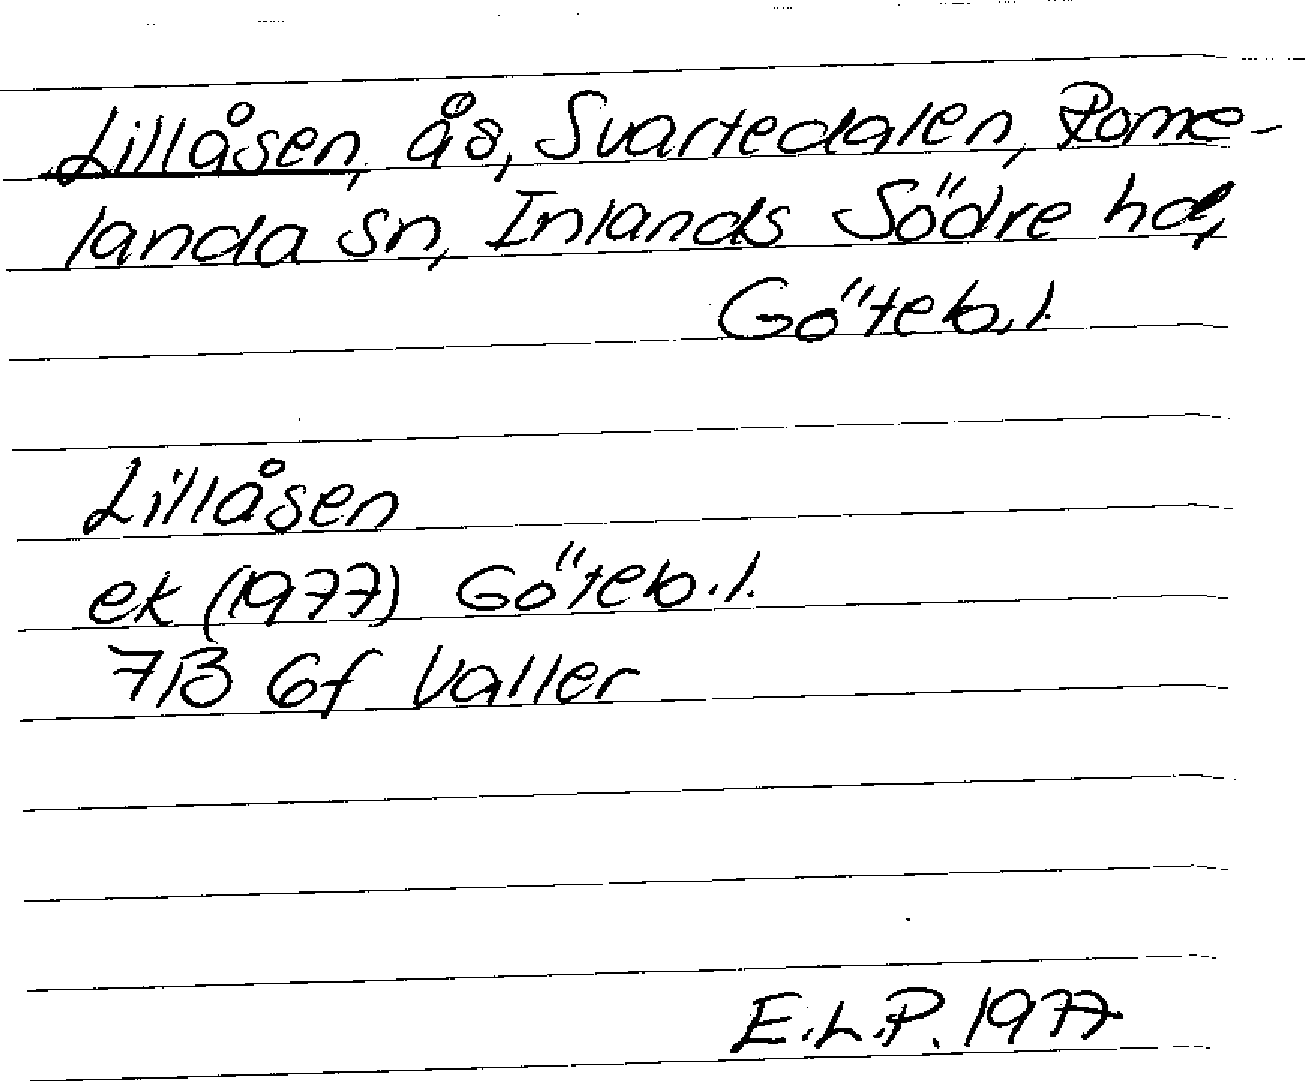 Lillåsen, ås, Svartedalen, Rome-
landa sn, Inlands Södre hd,
Göteb.l.
Lillåsen
ek (1977) Göteb.l.
7B 6f Valler
E.L.P. 1977